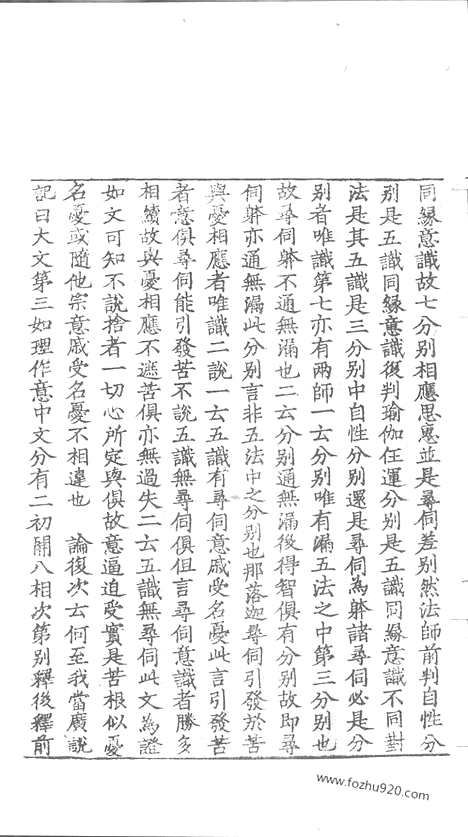 同緣意識故七分別相應思惠並是尋伺差別然法師前判自性分
別是五識同緣意識後判瑜伽任運分別是五識同緣意識不同對
法是其五識是三分別中自性分別還是尋伺為躰諸尋伺必是分
別者唯識第七亦有兩師一云分別唯有漏五法之中第三分別也
故尋伺躰不通無漏也二云分別通無漏後得智俱有分別故即尋
伺躰亦通無漏此分別言非五法中之分別也那落迦尋伺引發於苦
與憂相應者唯識二說一云五識有尋伺意慼受名憂此言引發苦
者意俱尋伺能引發苦不說五識無尋伺俱但言尋伺意識者勝多
相續故與憂相應不遮苦俱亦無過失二云五識無尋伺此文為證
如文可知不說捨者一切心所定與俱故意逼迫受實是苦根似憂
名憂或隨他宗意慼受名憂不相違也　論復次云何至我當廣說
記曰大文第三如理作意中文分有二初開八相次第別釋後釋前
www.fozhu920.com